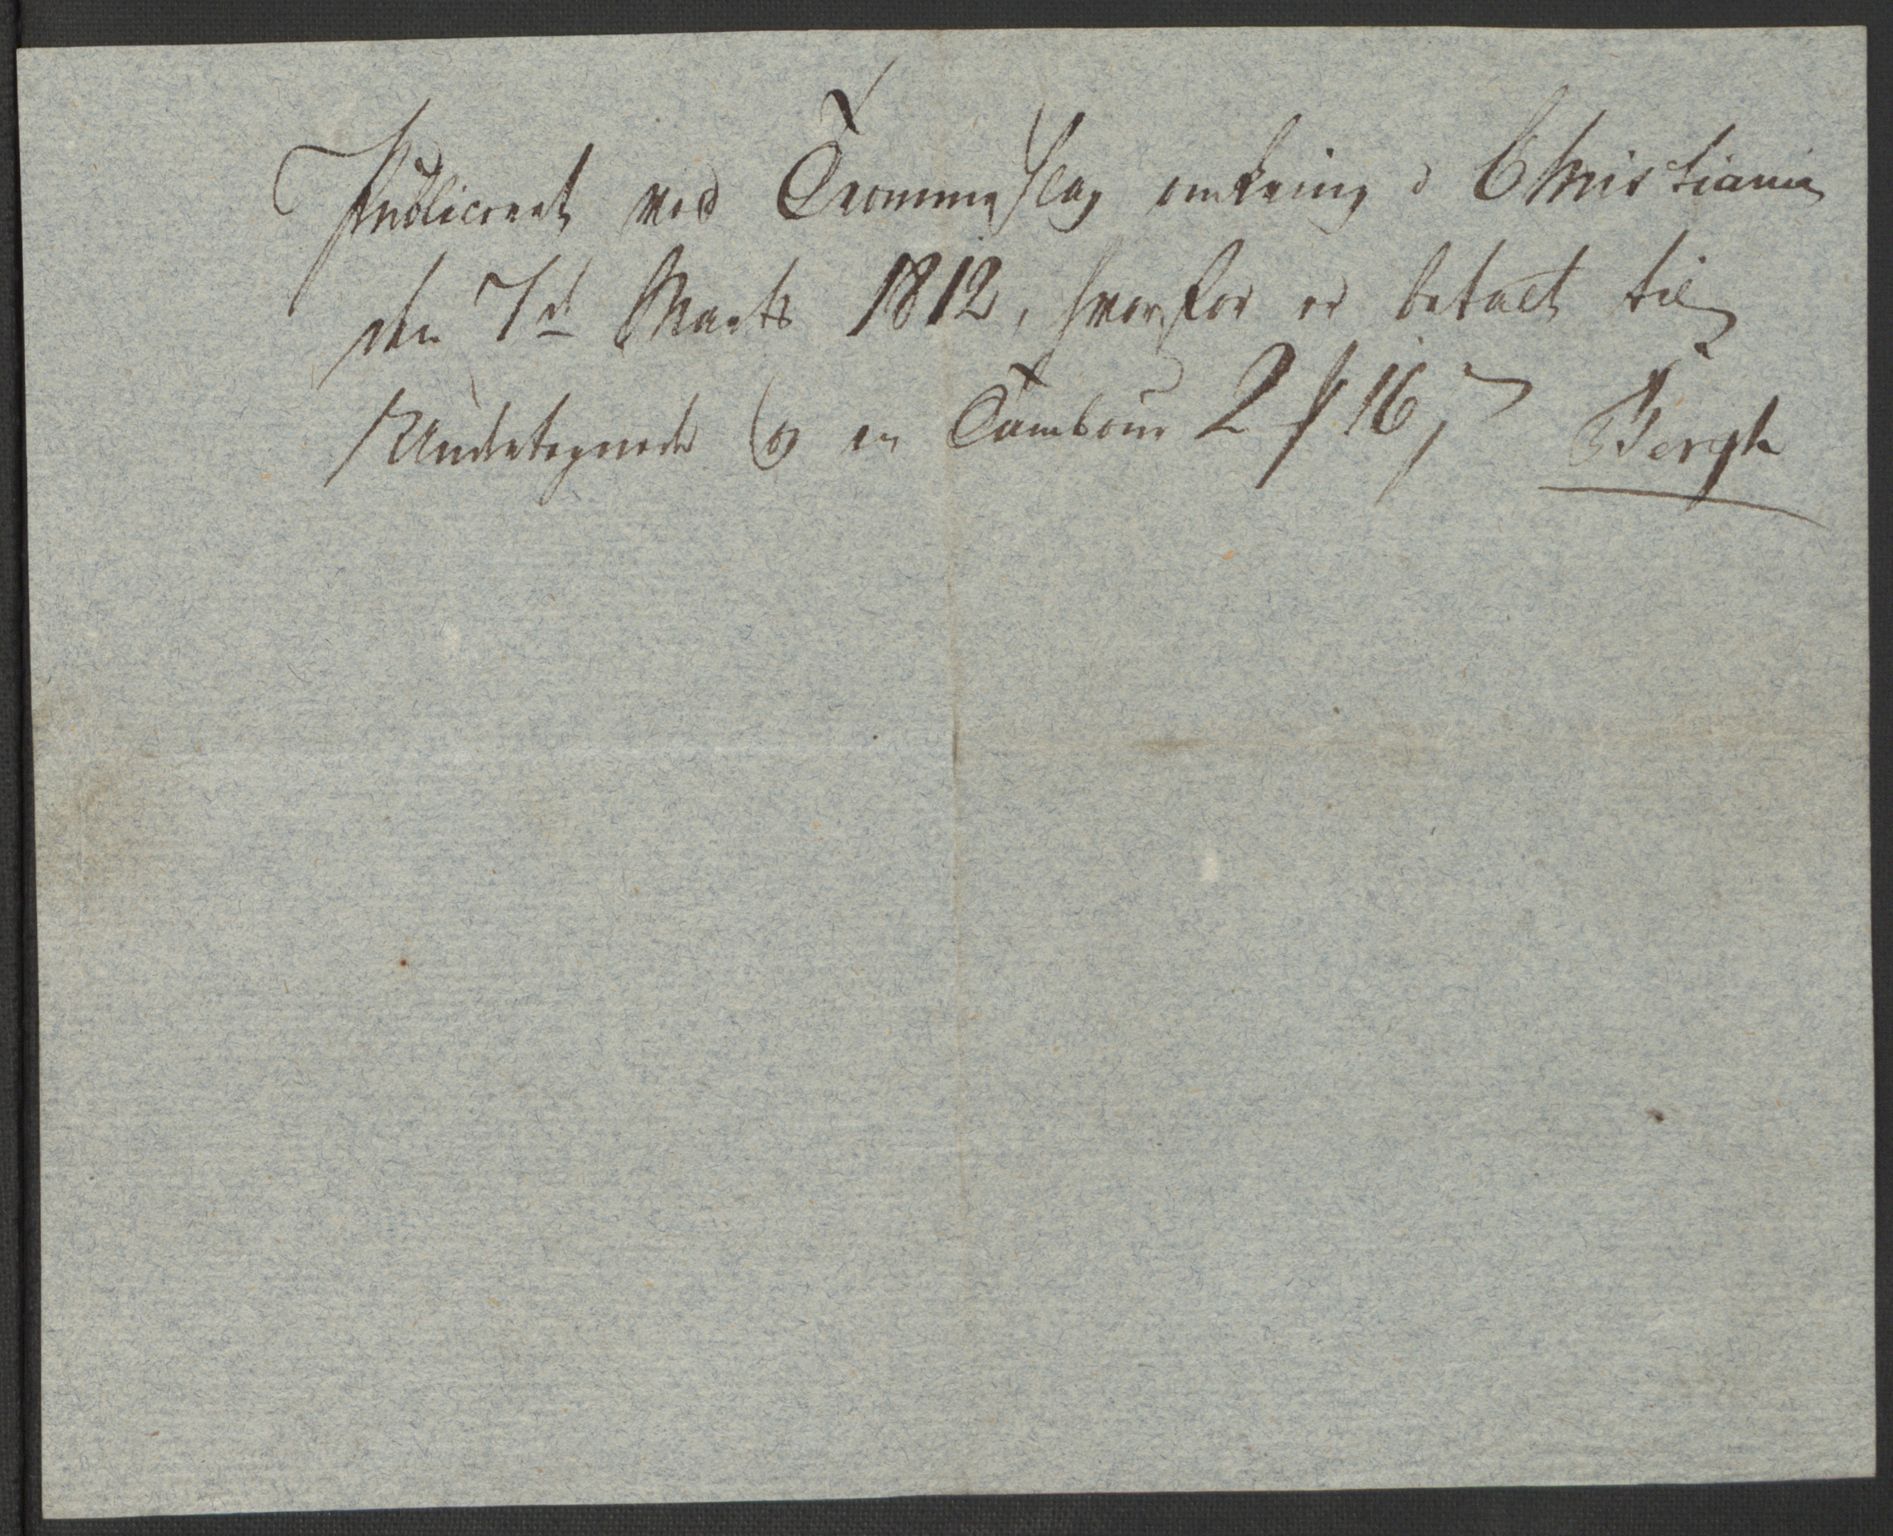 Publiceret ved Trommeslag omkring i Christiania
den 7d Marts 1812, hvorfor er betalt til
Undertegnede og en Tambour 2 16 Bergh